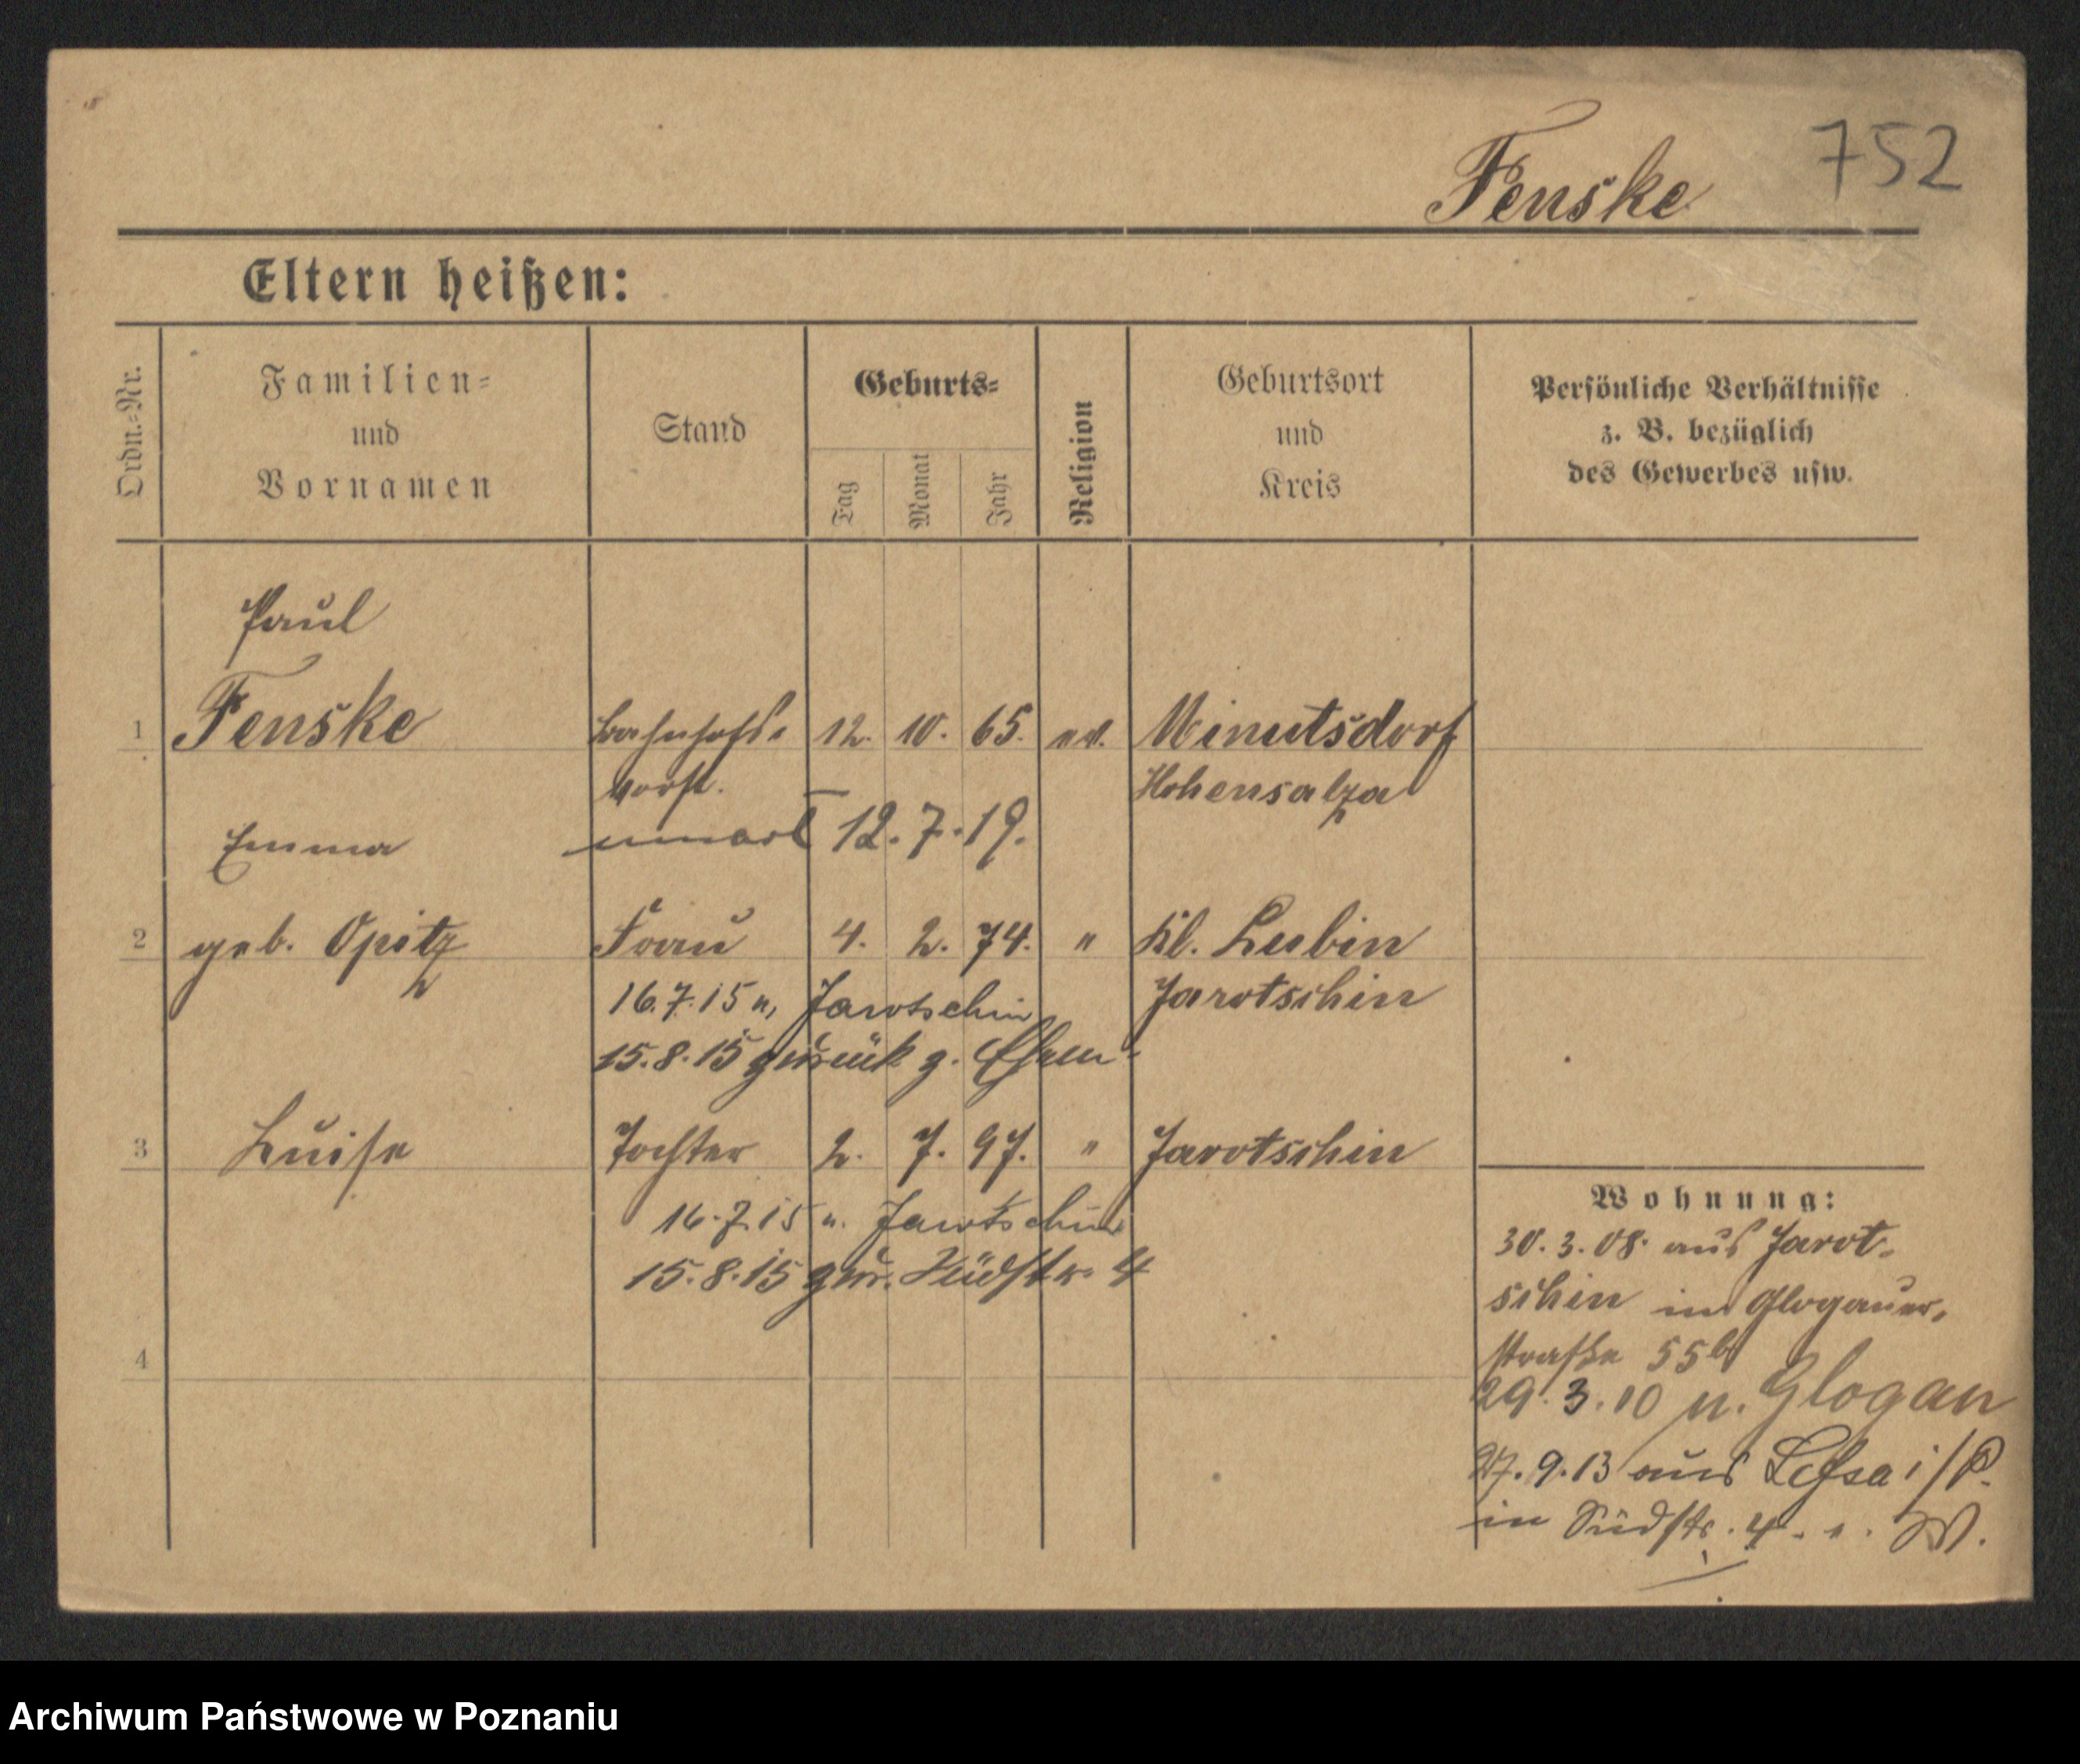 752
Fenske
Eltern heißen:
Ordn.-Nr.
Familien-
und
Vornamen
Stand
Geburts-
Tag
Monat
Jahr
Religion
Geburtsort
und
Kreis
Persönliche Verhältnisse
z. B. bezüglich
des Gewerbes usw.
Paul
1 Fenske Bahnhofs- 12. 10. 65. ev. Minutsdorf
vorst. Hohensalza
Emma 12.7.19.
2 geb. Opitz Frau 4. 2. 74. " Kl. Lubin
16.7.15 n. Jarotschin Jarotschin
15.8.15 zurück z. Ehem.
3 Luise Tochter 2. 7. 97. " Jarotschin
16.7.15 n. Jarotschin
15.8.15 zur. Südstr. 4
4
Wohnung:
30.3.08. aus Jarot-
schin in Glogauer-
straße 55b
29.3.10 n. Glogau
27.9.13 aus Lissa i/P.
in Südstr. 4.
Archiwum Państwowe w Poznaniu